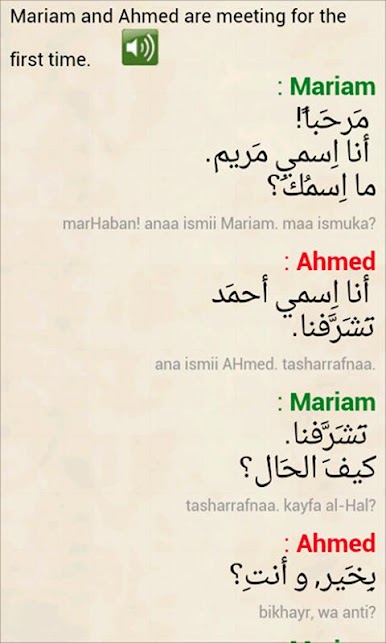 Mariam and Ahmed are meeting for the
first time.
Mariam :
مَرحَباً!
أنا اِسمي مَريم.
ما اِسمُكَ؟
marHaban! anaa ismii Mariam. maa ismuka?
Ahmed :
أنا اِسمي أحمَد
تَشَرَّفنا.
ana ismii AHmed. tasharrafnaa.
Mariam :
تَشَرَّفنا.
كيفَ الحَال؟
tasharrafnaa. kayfa al-Hal?
Ahmed :
بِخَير, و أنتِ؟
bikhayr, wa anti?